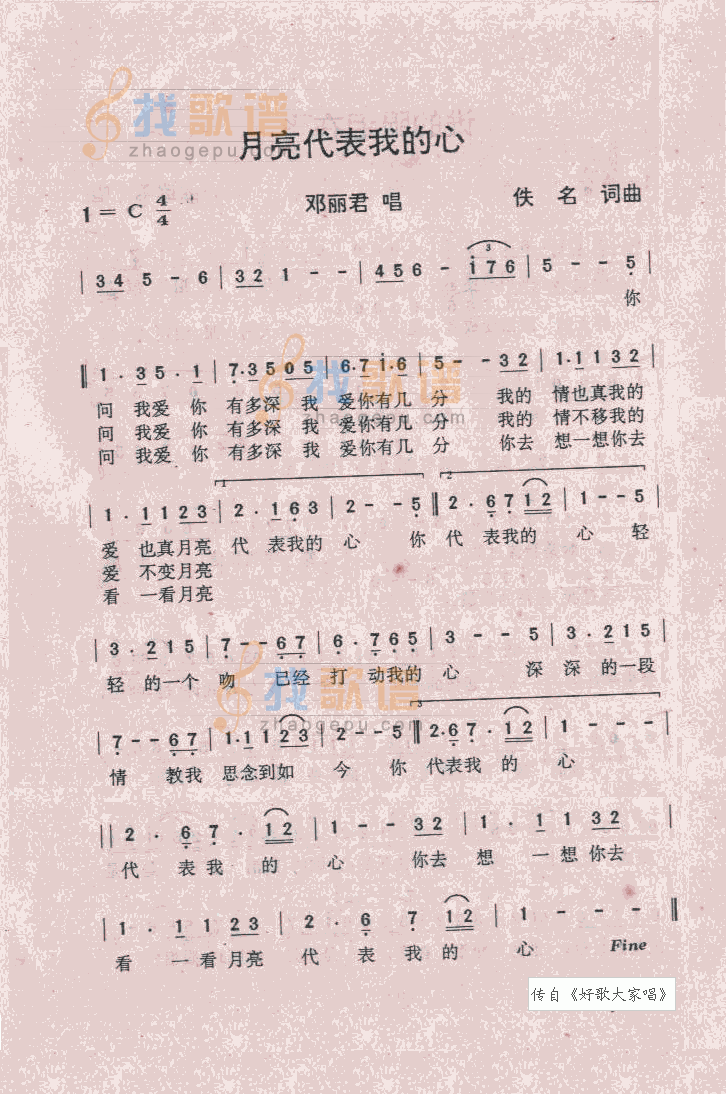 找歌谱
zhaogepu.com
月亮代表我的心
1 = C 4/4 邓丽君 唱 佚 名 词曲
| 34 5 - 6 | 32 1 - - | 456 - i76 | 5 - - 5 |
你
‖ 1 · 35 · 1 | 7·3505 | 6·7i·6 | 5 - - 32 | 1·1132 |
问 我爱 你 有多深 我 爱你有几 分 我的 情也真我的
问 我爱 你 有多深 我 爱你有几 分 我的 情不移我的
问 我爱 你 有多深 我 爱你有几 分 你去 想一想你去
| 1 · 1123 | 2 · 163 | 2 - - 5 ‖ 2 · 67 · 12 | 1 - - 5 |
爱 也真月亮 代 表我的 心 你 代 表我的 心 轻
爱 不变月亮
看 一看月亮
| 3 · 215 | 7 - - 67 | 6 · 765 | 3 - - 5 | 3 · 215 |
轻 的一个 吻 已经 打 动我的 心 深 深 的一段
找歌谱
zhaogepu.com
| 7 - - 67 | 1·1123 | 2 - - 5 ‖ 2·67 · 12 | 1 - - -
情 教我 思念到如 今 你 代表我 的 心
‖ 2 · 6 7 · 12 | 1 - - 32 | 1 · 1 1 32 |
代 表 我 的 心 你去 想 一 想你去
| 1 · 1 1 23 | 2 · 6 7 · 12 | 1 - - - ‖
看 一 看 月亮 代 表 我 的 心 Fine
传自《好歌大家唱》